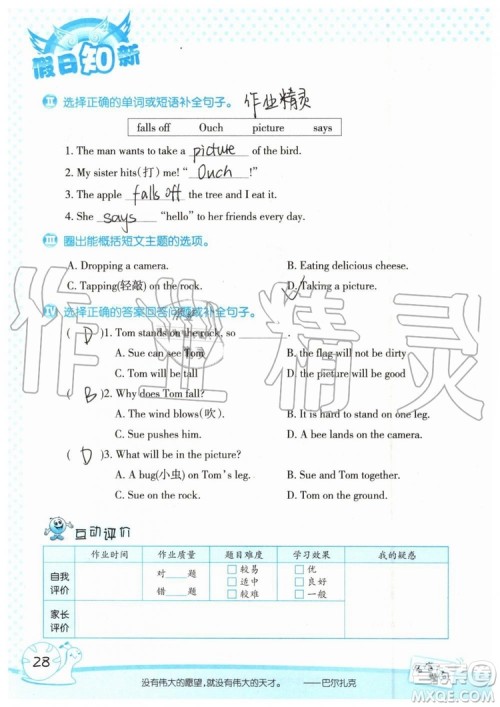 假日知新
II 选择正确的单词或短语补全句子。 作业精灵
falls off Ouch picture says
1. The man wants to take a picture of the bird.
2. My sister hits(打) me! “Ouch!”
3. The apple falls off the tree and I eat it.
4. She says “hello” to her friends every day.
III 圈出能概括短文主题的选项。
A. Dropping a camera. B. Eating delicious cheese.
C. Tapping(轻敲) on the rock. D. Taking a picture.
IV 选择正确的答案回答问题或补全句子。
( D )1. Tom stands on the rock, so .
A. Sue can see Tom B. the flag will not be dirty
C. Tom will be tall D. the picture will be good
( B )2. Why does Tom fall?
A. The wind blows(吹). B. It is hard to stand on one leg.
C. Sue pushes him. D. A bee lands on one leg.
( D )3. What will be in the picture?
A. A bug(小虫) on Tom's leg. B. Sue and Tom together.
C. Sue on the rock. D. Tom on the rock.
作业精灵
互动评价
作业时间 作业质量 题目难度 学习效果 我的疑惑
自我评价 对 题 错 题 □较易 □适中 □较难 □优 □良 □一般
家长评价
28
没有伟大的愿望,就没有伟大的天才。 ——巴尔扎克
答案圈
MXQE.COM